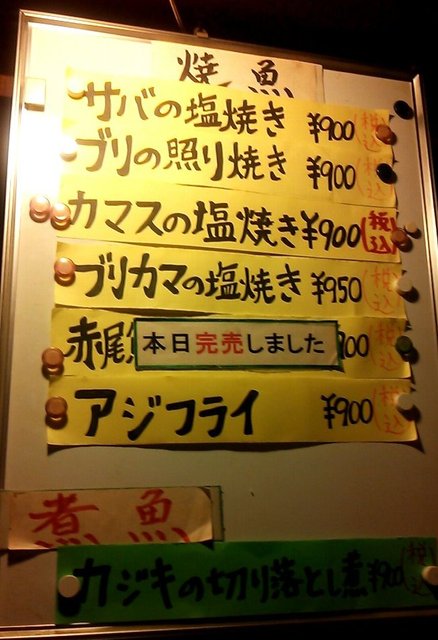 焼魚
サバの塩焼き ¥900 (税込)
ブリの照り焼き ¥900 (税込)
カマスの塩焼き ¥900 (税込)
ブリカマの塩焼き ¥950 (税込)
赤尾 本日完売しました 00 (税込)
アジフライ ¥900 (税込)
煮魚
カジキの切り落とし煮 (税込)